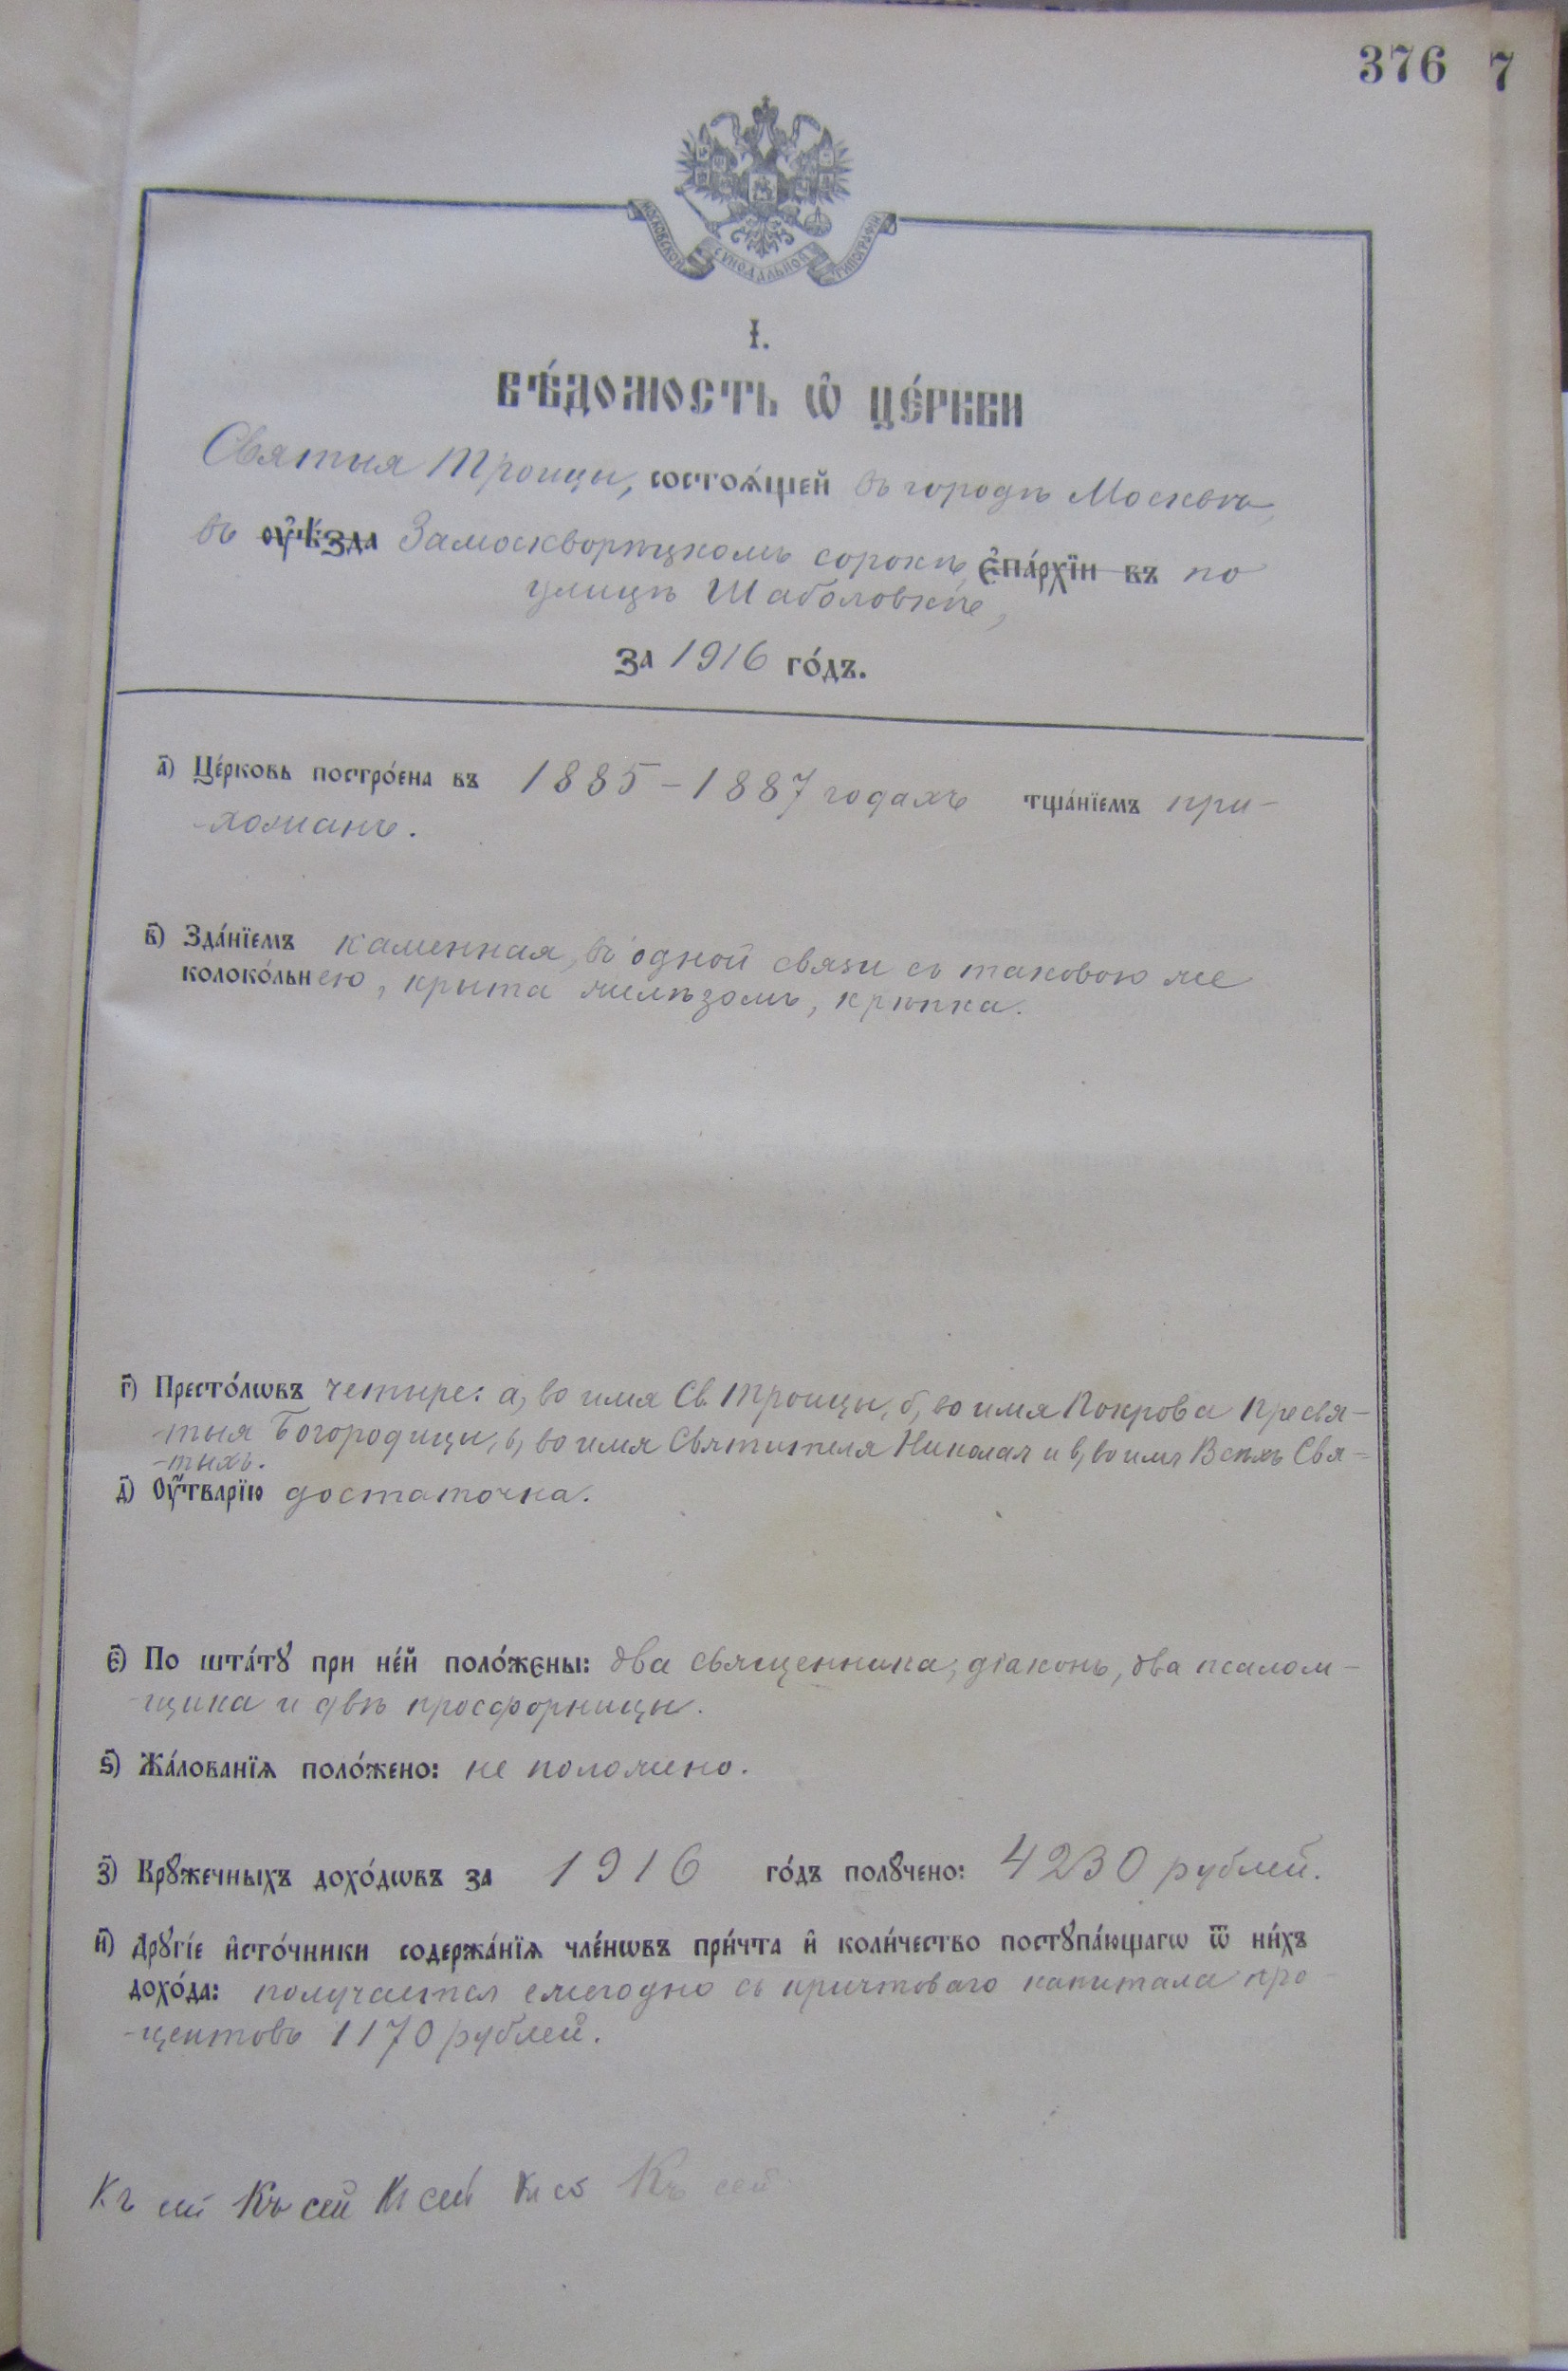 376 7
МОСКОВСКОЙ СѴНОДАЛЬНОЙ ТИПОГРАФІИ
І.
ВѢ́ДОМОСТЬ Ѡ҆ ЦЕ́РКВИ
Святыя Троицы, состоѧ́щей въ городѣ Москвѣ,
въ ᲂу҆ѣ́зда Замоскворѣцкомъ сорокѣ, є҆па́рхїи въ по
улицѣ Шаболовкѣ,
за 1916 го́дъ.
а҃) Це́рковь постро́ена въ 1885-1887 годахъ тща́нїемъ при-
-хожанъ.
в҃) Зда́нїемъ каменная, въ одной связи съ таковою же
колоко́льнею, крыта желѣзомъ, крѣпка.
г҃) Престо́лѡвъ четыре: а, во имя Св. Троицы, б, во имя Покрова Пресвя-
-тыя Богородицы, в, во имя Святителя Николая и в, во имя Всѣхъ Свя-
-тыхъ.
д҃) Оу҆́тварїю достаточна.
є҃) По шта́тꙋ при не́й поло́жены: два священника, діаконъ, два псалом-
-щика и двѣ просфорницы.
ѕ҃) Жа́лованїѧ поло́жено: не положено.
з҃) Крꙋ́жечныхъ дохо́дѡвъ за 1916 го́дъ полꙋ́чено: 4230 рублей.
и҃) Дрꙋгі́е и҆сто́чники содержа́нїѧ чле́нѡвъ при́чта и҆ коли́чество постꙋпа́ющагѡ ѿ ни́хъ
дохо́да: получается ежегодно съ причтоваго капитала про-
-центовъ 1170 рублей.
Къ сей Къ сей К сей Къ сей